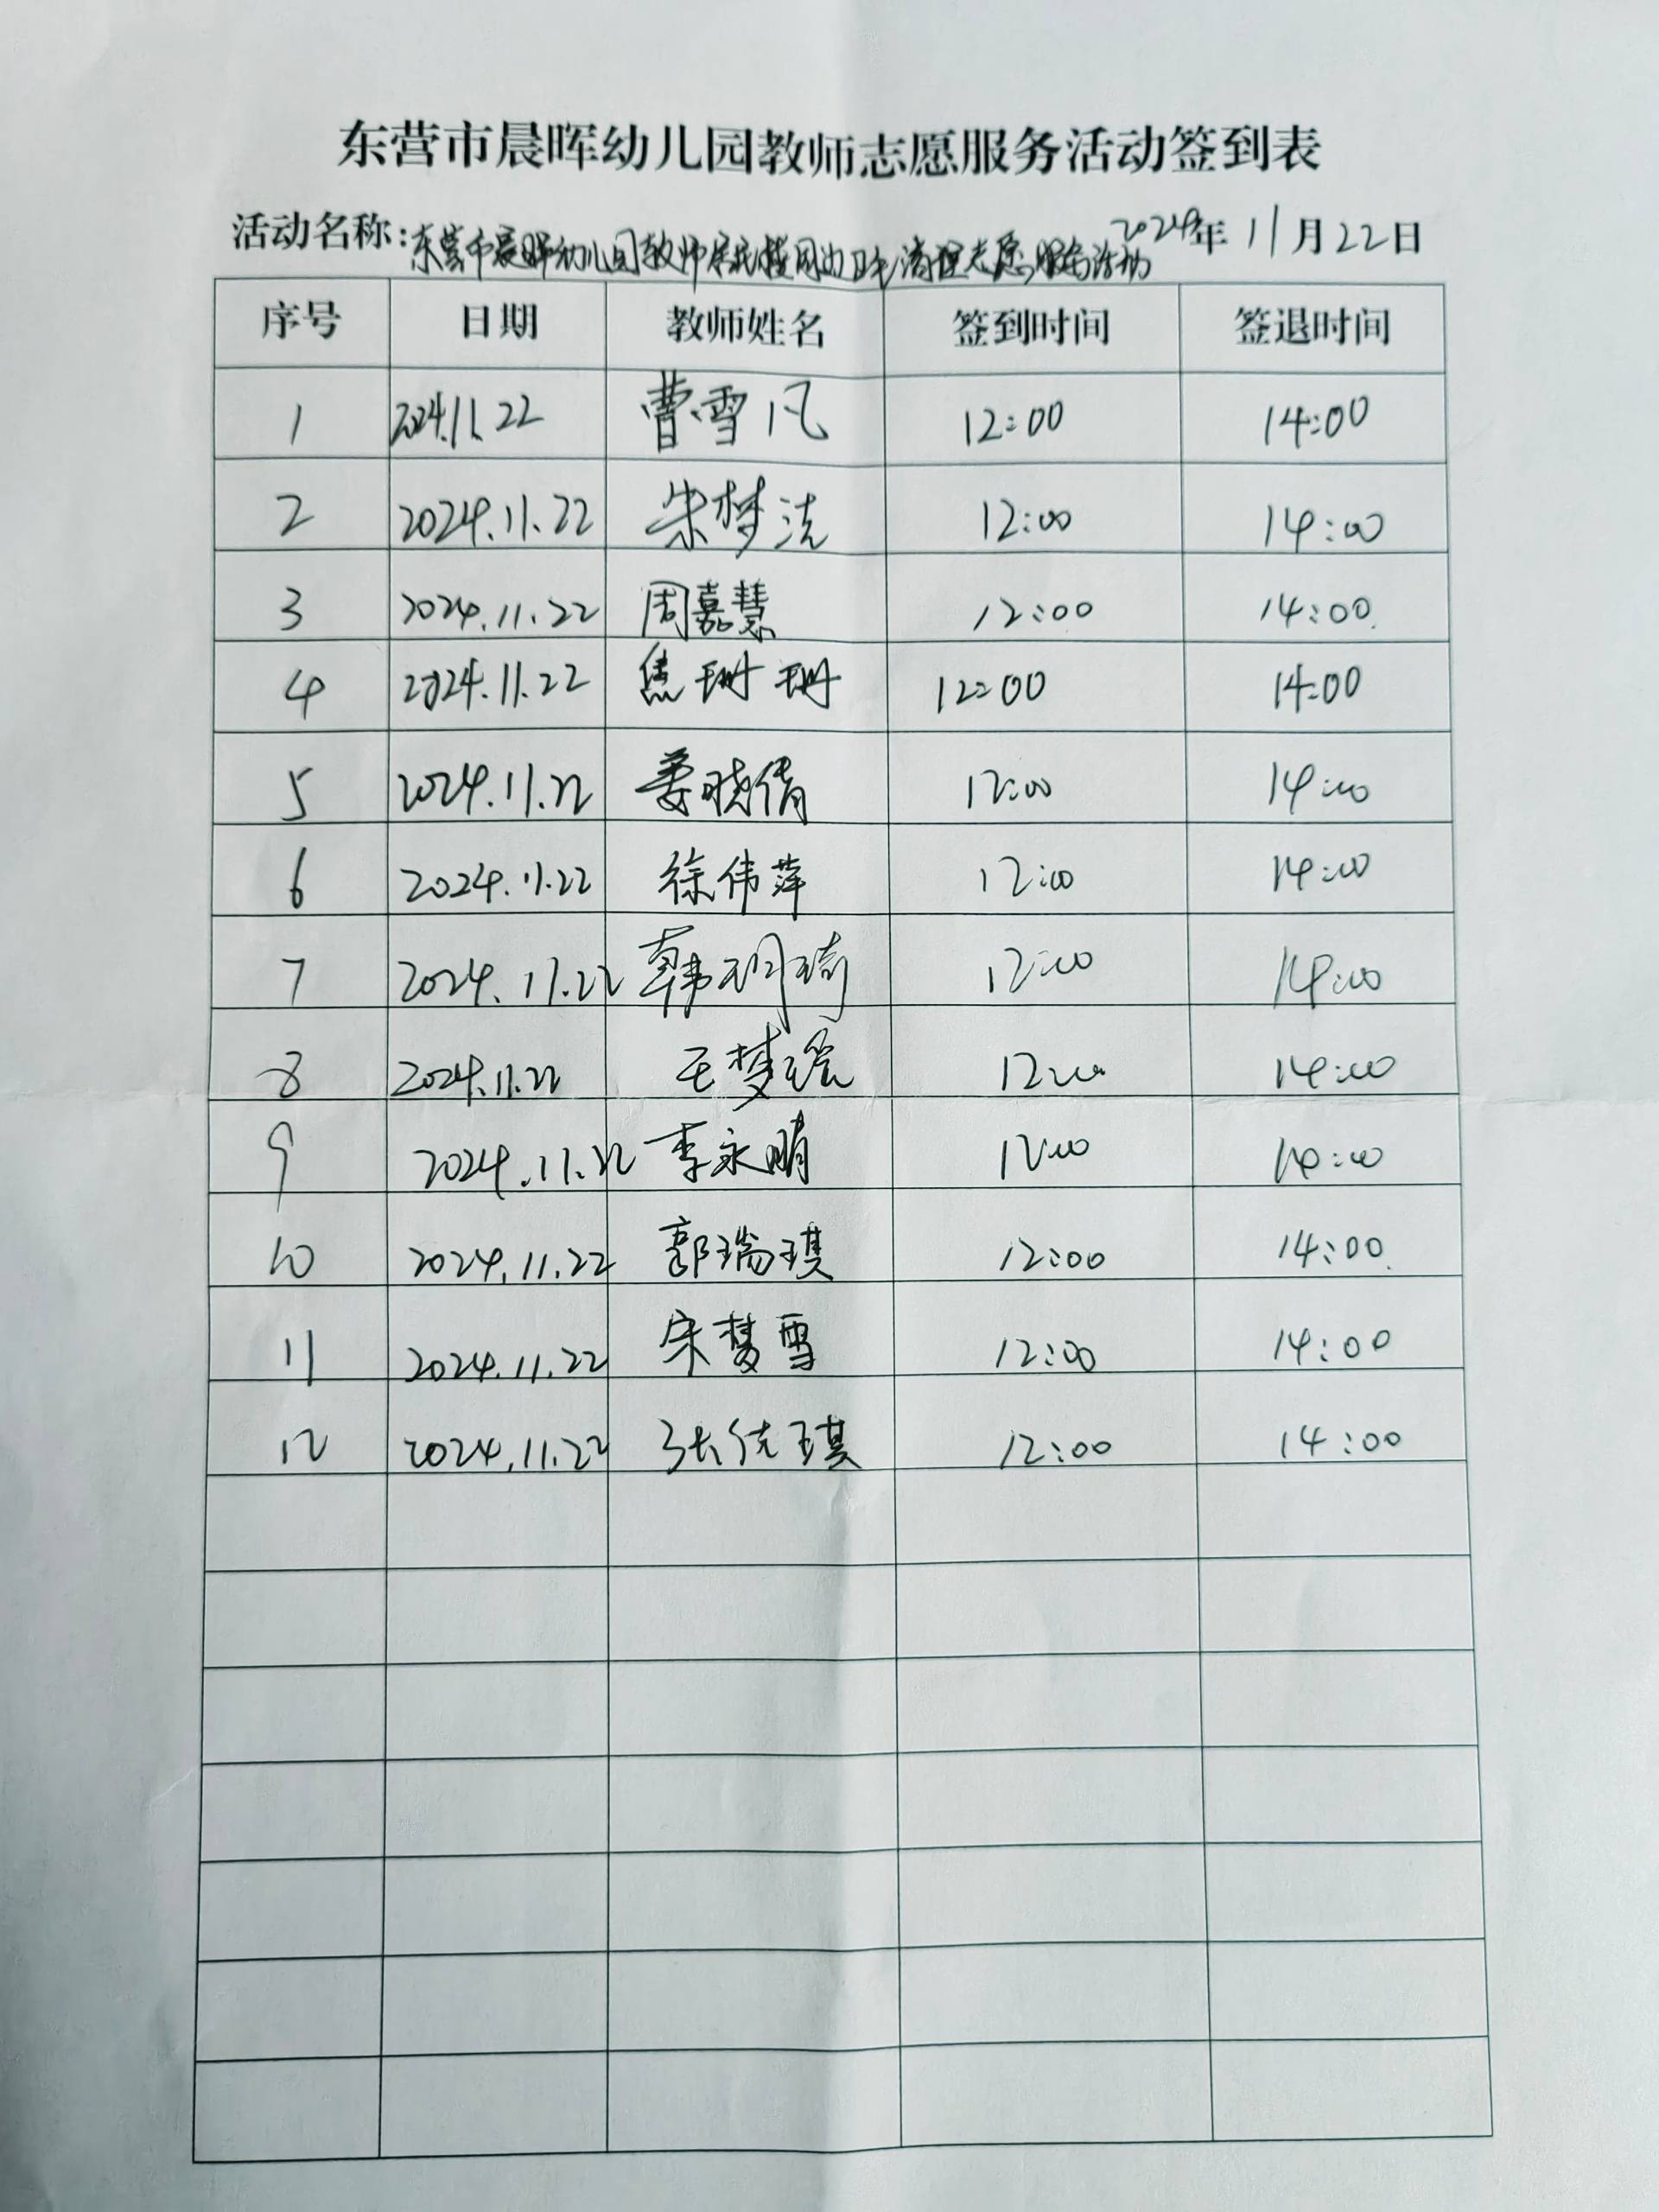 东营市晨晖幼儿园教师志愿服务活动签到表
活动名称:东营市晨晖幼儿园教师居民楼周边卫生清理志愿服务活动 2024年11月22日
序号 日期 教师姓名 签到时间 签退时间
1 2024.11.22 曹雪凡 12:00 14:00
2 2024.11.22 朱梦洁 12:00 14:00
3 2024.11.22 周嘉慧 12:00 14:00
4 2024.11.22 焦珊珊 12:00 14:00
5 2024.11.22 姜晓倩 12:00 14:00
6 2024.11.22 徐伟萍 12:00 14:00
7 2024.11.22 韩玥琦 12:00 14:00
8 2024.11.22 王梦瑶 12:00 14:00
9 2024.11.22 李永晴 12:00 14:00
10 2024.11.22 郭瑞琪 12:00 14:00
11 2024.11.22 宋梦雪 12:00 14:00
12 2024.11.22 12:00 14:00